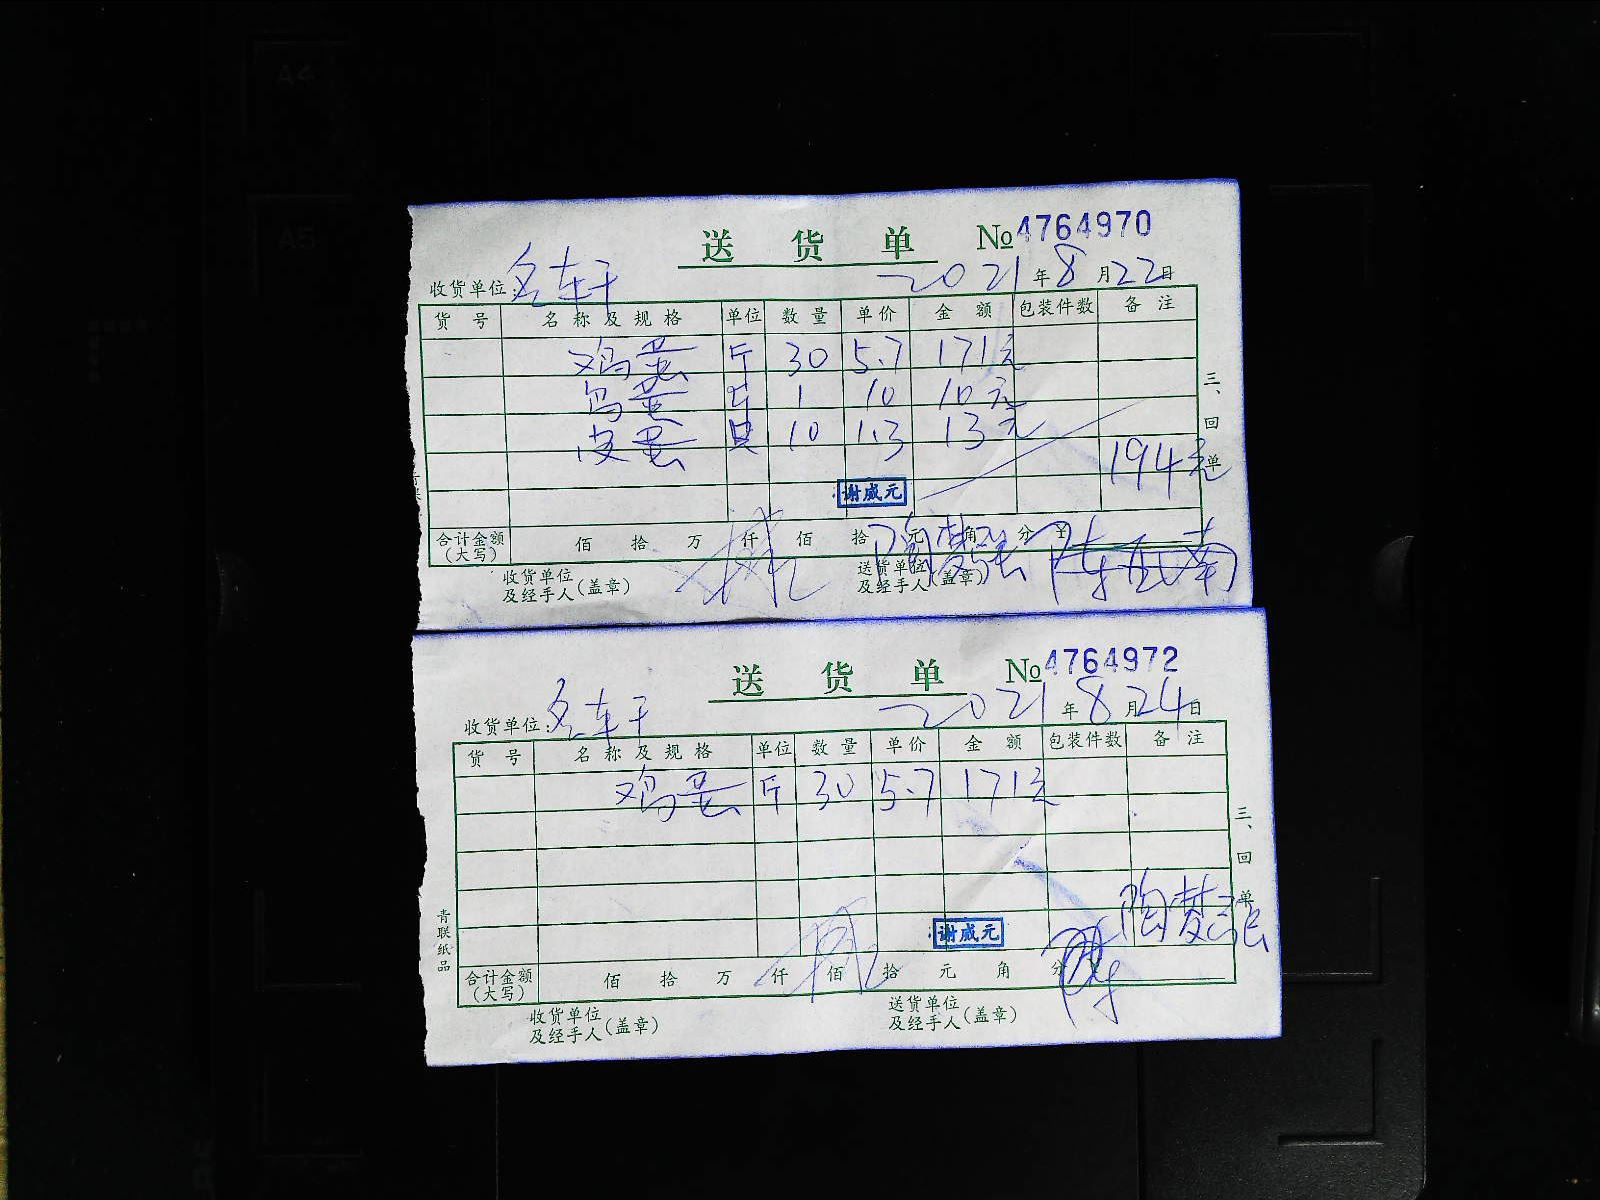 送 货 单 №4764970
收货单位：名车干 2021年8月22日
货 号 名 称 及 规 格 单位 数 量 单 价 金 额 包装件数 备 注
鸡蛋 斤 30 5.7 171元
鸟蛋 斤 1 10 10元
皮蛋 只 10 1.3 13元
194元
谢威元
合计金额（大写） 佰 拾 万 仟 佰 拾 元 角 分 ￥
收货单位及经手人（盖章） 送货单位及经手人（盖章） 陶梦 陈亚南
三、回单
送 货 单 №4764972
收货单位：名车干 2021年8月24日
货 号 名 称 及 规 格 单位 数 量 单 价 金 额 包装件数 备 注
鸡蛋 斤 30 5.7 171元
陶梦
谢威元
合计金额（大写） 佰 拾 万 仟 佰 拾 元 角 分
收货单位及经手人（盖章） 送货单位及经手人（盖章）
三、回单
青联纸品
A4
A5